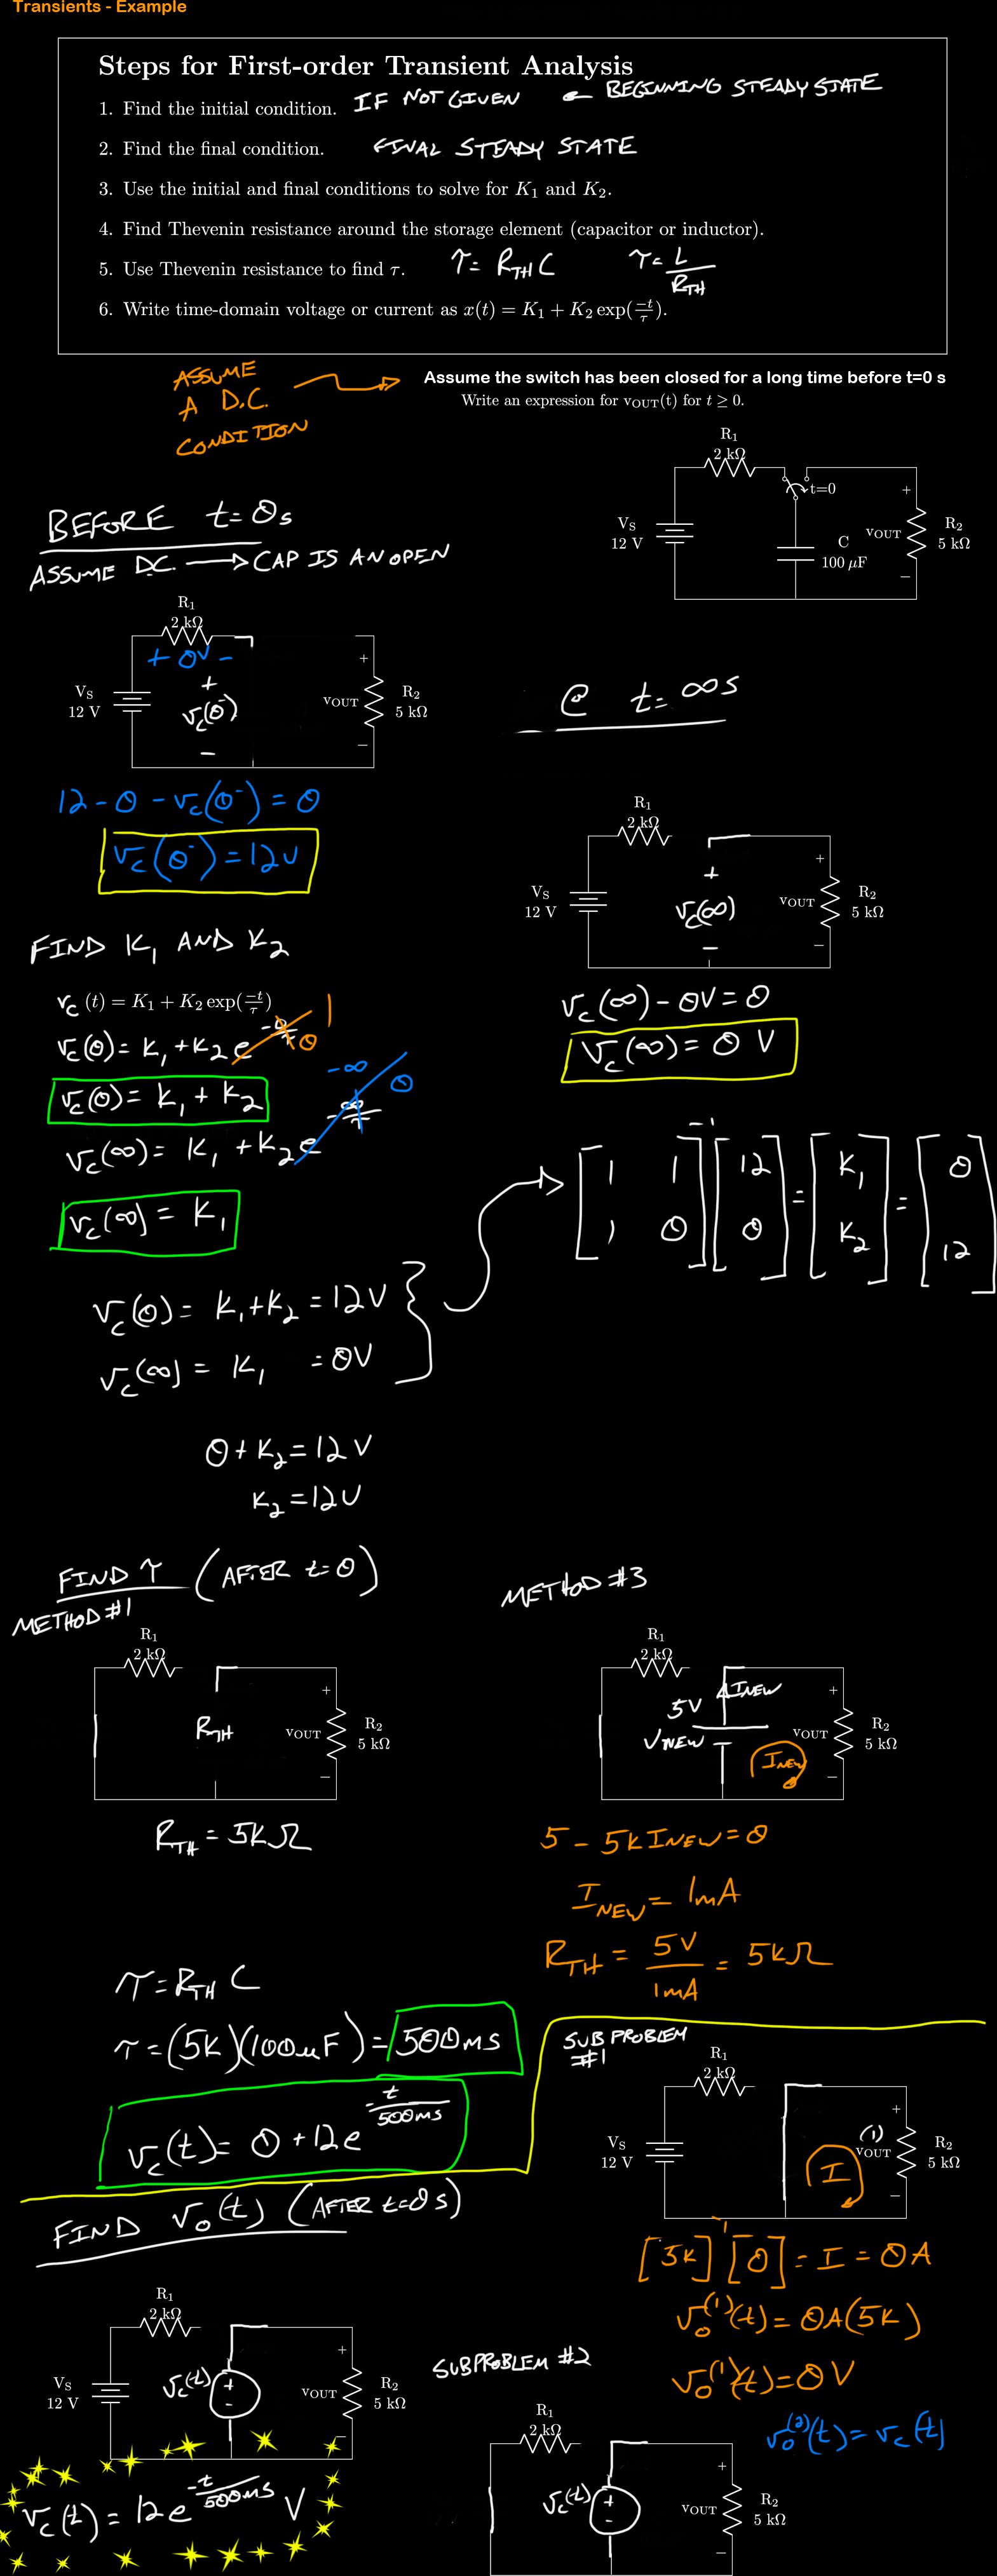 Transients - Example
Steps for First-order Transient Analysis
1. Find the initial condition. IF NOT GIVEN ← BEGINNING STEADY STATE
2. Find the final condition. FINAL STEADY STATE
3. Use the initial and final conditions to solve for K₁ and K₂.
4. Find Thevenin resistance around the storage element (capacitor or inductor).
5. Use Thevenin resistance to find τ. τ = R_TH C τ = L/R_TH
6. Write time-domain voltage or current as x(t) = K₁ + K₂ exp(−t/τ).
ASSUME
A D.C.
CONDITION
Assume the switch has been closed for a long time before t=0 s
Write an expression for v_OUT(t) for t ≥ 0.
R₁
2 kΩ
t=0
V_S
12 V
C
100 μF
+
v_OUT
−
R₂
5 kΩ
BEFORE t=0s
ASSUME D.C. → CAP IS AN OPEN
R₁
2 kΩ
+ 0V −
V_S
12 V
+
v_c(0⁻)
−
+
v_OUT
−
R₂
5 kΩ
12 − 0 − v_c(0⁻) = 0
v_c(0⁻) = 12V
@ t=∞s
R₁
2 kΩ
V_S
12 V
+
v_c(∞)
−
+
v_OUT
−
R₂
5 kΩ
v_c(∞) − 0V = 0
v_c(∞) = 0 V
FIND K₁ AND K₂
v_c (t) = K₁ + K₂ exp(−t/τ)
v_c(0) = K₁ + K₂ e^(−0/τ) 0 1
v_c(0) = K₁ + K₂
v_c(∞) = K₁ + K₂ e^(−∞/τ) −∞ 0
v_c(∞) = K₁
v_c(0) = K₁+K₂ = 12V
v_c(∞) = K₁ = 0V
[1 1; 1 0]⁻¹ [12; 0] = [K₁; K₂] = [0; 12]
0 + K₂ = 12 V
K₂ = 12V
FIND τ (AFTER t=0)
METHOD #1
R₁
2 kΩ
R_TH
+
v_OUT
−
R₂
5 kΩ
R_TH = 5KΩ
METHOD #3
R₁
2 kΩ
5V
V_NEW
I_NEW
I_NEW
+
v_OUT
−
R₂
5 kΩ
5 − 5K I_NEW = 0
I_NEW = 1mA
R_TH = 5V/1mA = 5KΩ
τ = R_TH C
τ = (5K)(100uF) = 500ms
v_c(t) = 0 + 12e^(−t/500ms)
FIND v_o(t) (AFTER t=0s)
R₁
2 kΩ
V_S
12 V
v_c(t)
+
−
+
v_OUT
−
R₂
5 kΩ
v_c(t) = 12e^(−t/500ms) V
SUBPROBLEM
#1
R₁
2 kΩ
V_S
12 V
I
+
(1)
v_OUT
−
R₂
5 kΩ
[5K]⁻¹[0] = I = 0A
v_o⁽¹⁾(t) = 0A(5K)
v_o⁽¹⁾(t) = 0V
SUBPROBLEM #2
R₁
2 kΩ
v_c(t)
+
−
+
v_OUT
−
R₂
5 kΩ
v_o⁽²⁾(t) = v_c(t)